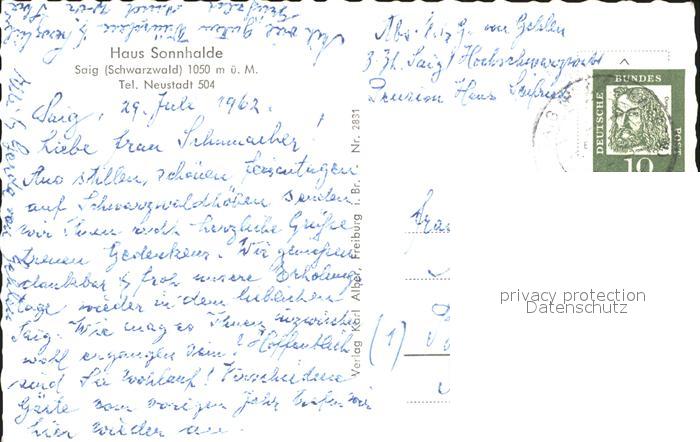 Haus Sonnhalde
Saig (Schwarzwald) 1050 m ü. M.
Tel. Neustadt 504
Saig, 29. Juli 1962.
Liebe Frau Schumacher!
Aus stillen, schönen Ferientagen
auf Schwarzwaldhöhen senden
wir Ihnen recht herzliche Grüße
treuen Gedenkens. Wir genießen
dankbar & froh unsere Erholungs
tage wieder in dem lieblichen
Saig. Wie mag es Ihnen inzwischen
wohl ergangen sein? Hoffentlich
sind Sie wohlauf! Verschiedene
Gäste vom vorigen Jahr trafen wir
hier wieder an.
Mit viel guten Wünschen &
Verlag Karl Alber, Freiburg i. Br. • Nr. 2831
Abs. v. Gehlen
z. Zt. Saig / Hochschwarzwald
Pension Haus
DEUTSCHE
BUNDES
POST
10
Frau
(1)
privacy protection
Datenschutz